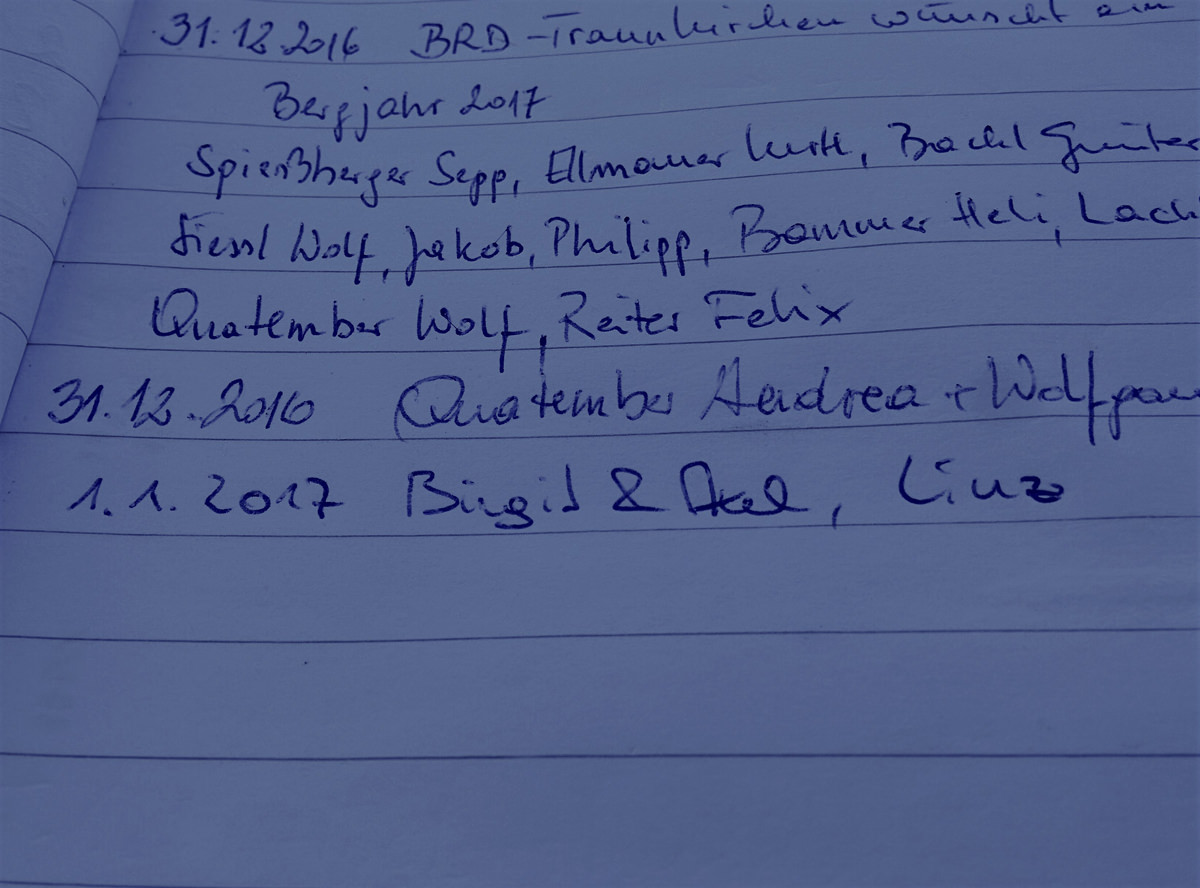 31.12.2016 BRD-Traunkirchen wünscht ein
Bergjahr 2017
Spießberger Sepp, Ellmauer Kurt, Bachl Günter
Fiessl Wolf, Jakob, Philipp, Bammer Heli,
Quatember Wolf, Reiter Felix
31.12.2016 Quatember Andrea + Wolfgan
1.1.2017 Birgid & Axel, Linz